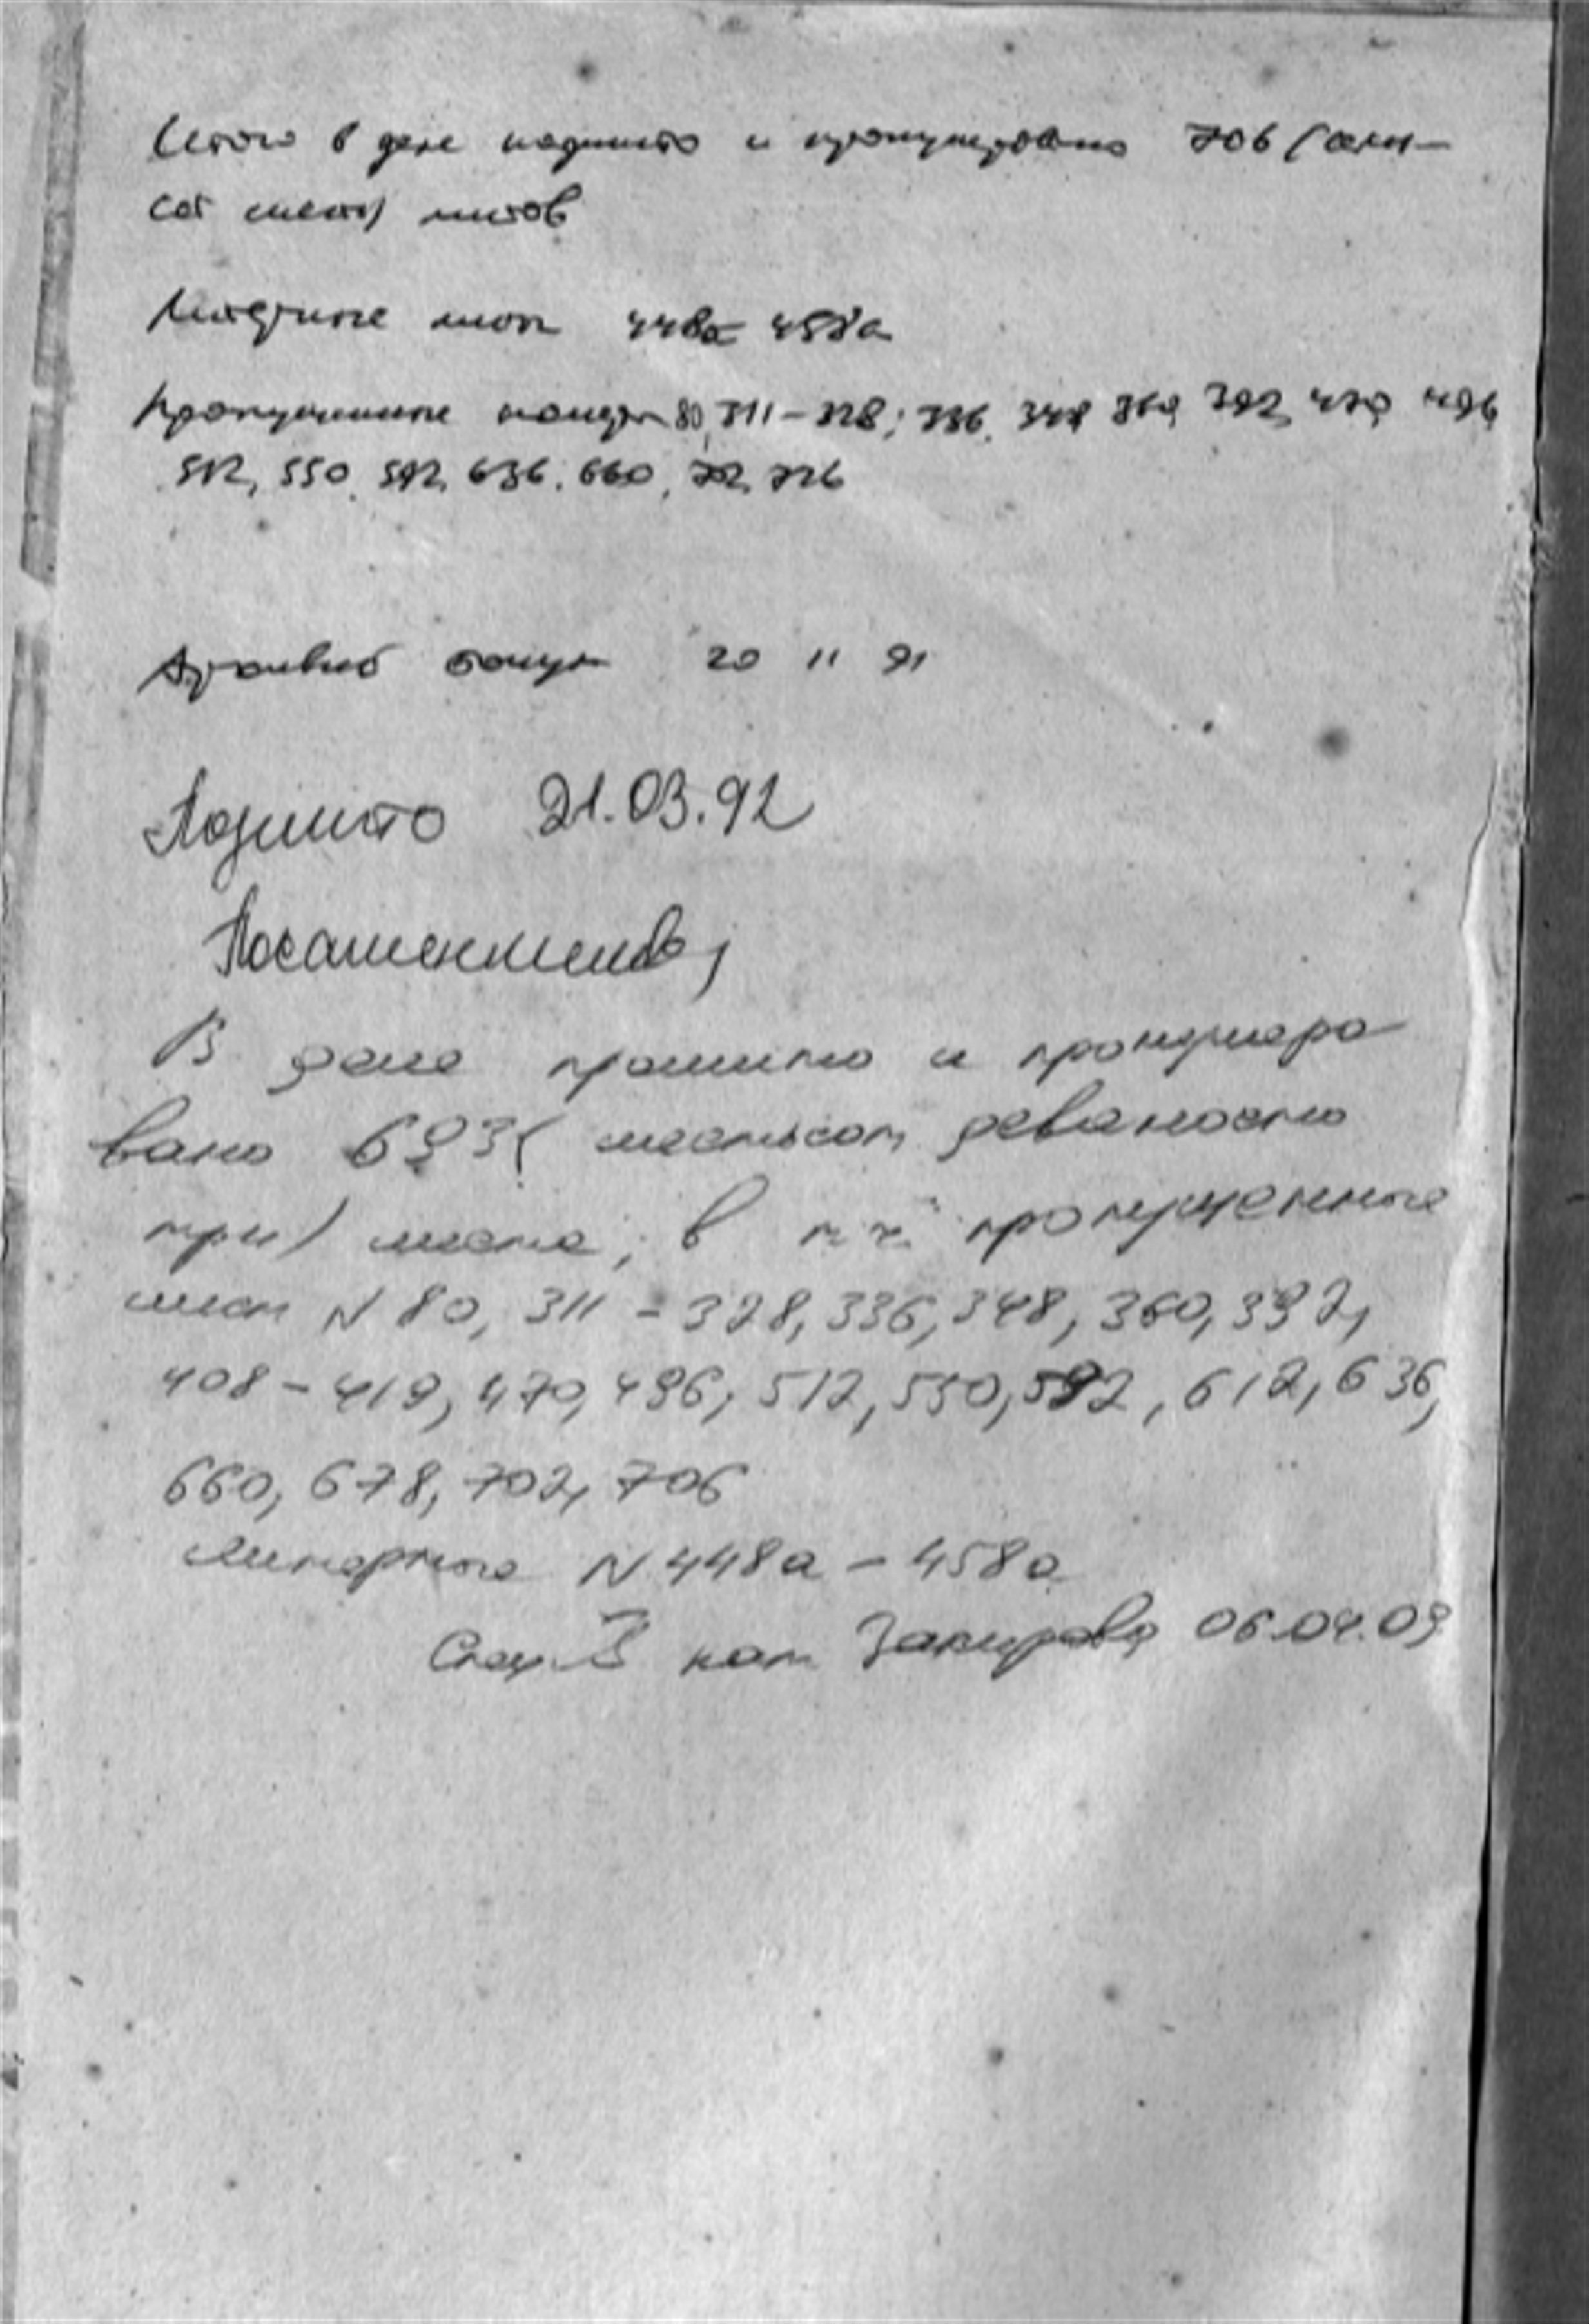 Итого в деле подшито и пронумеровано 706 (семь-
сот шесть) листов
Литерные листы 448а 458а
Пропущенные номера 80, 311-328; 336, 348 360, 392, 470, 496,
512, 550, 592, 636, 660, 702,
20 11 91
Подшито 21.03.92
В деле прошито и пронумеро
вано 693 (шестьсот девяносто
три) листа, в т.ч. пропущенные
лист N 80, 311 - 328, 336, 348, 360, 392,
408 - 419, 470, 496, 512, 550, 592, 612, 636,
660, 678, 702, 706
Литерные N 448а - 458а
Спец. кат Закирова 06.04.09